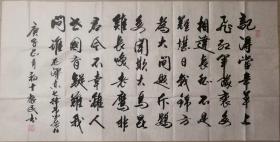 記得當年草上
飛紅軍隊裏每
相違長征不是
難堪日戰錦方
為大問題斥鷃
每聞欺大鳥昆
雞長笑老鷹非
君今不幸離人
世國有疑難可
問誰毛澤東七律
庚子年初十書